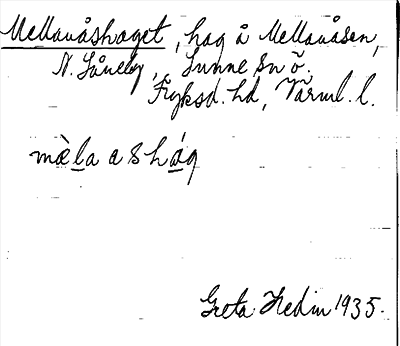 Mellanåshaget, hag å Mellanåsen,
N. Såneby, Sunne sn ö.
Fryksd. hd, Värml. l.
mèla a s hág
Greta Hedin 1935.